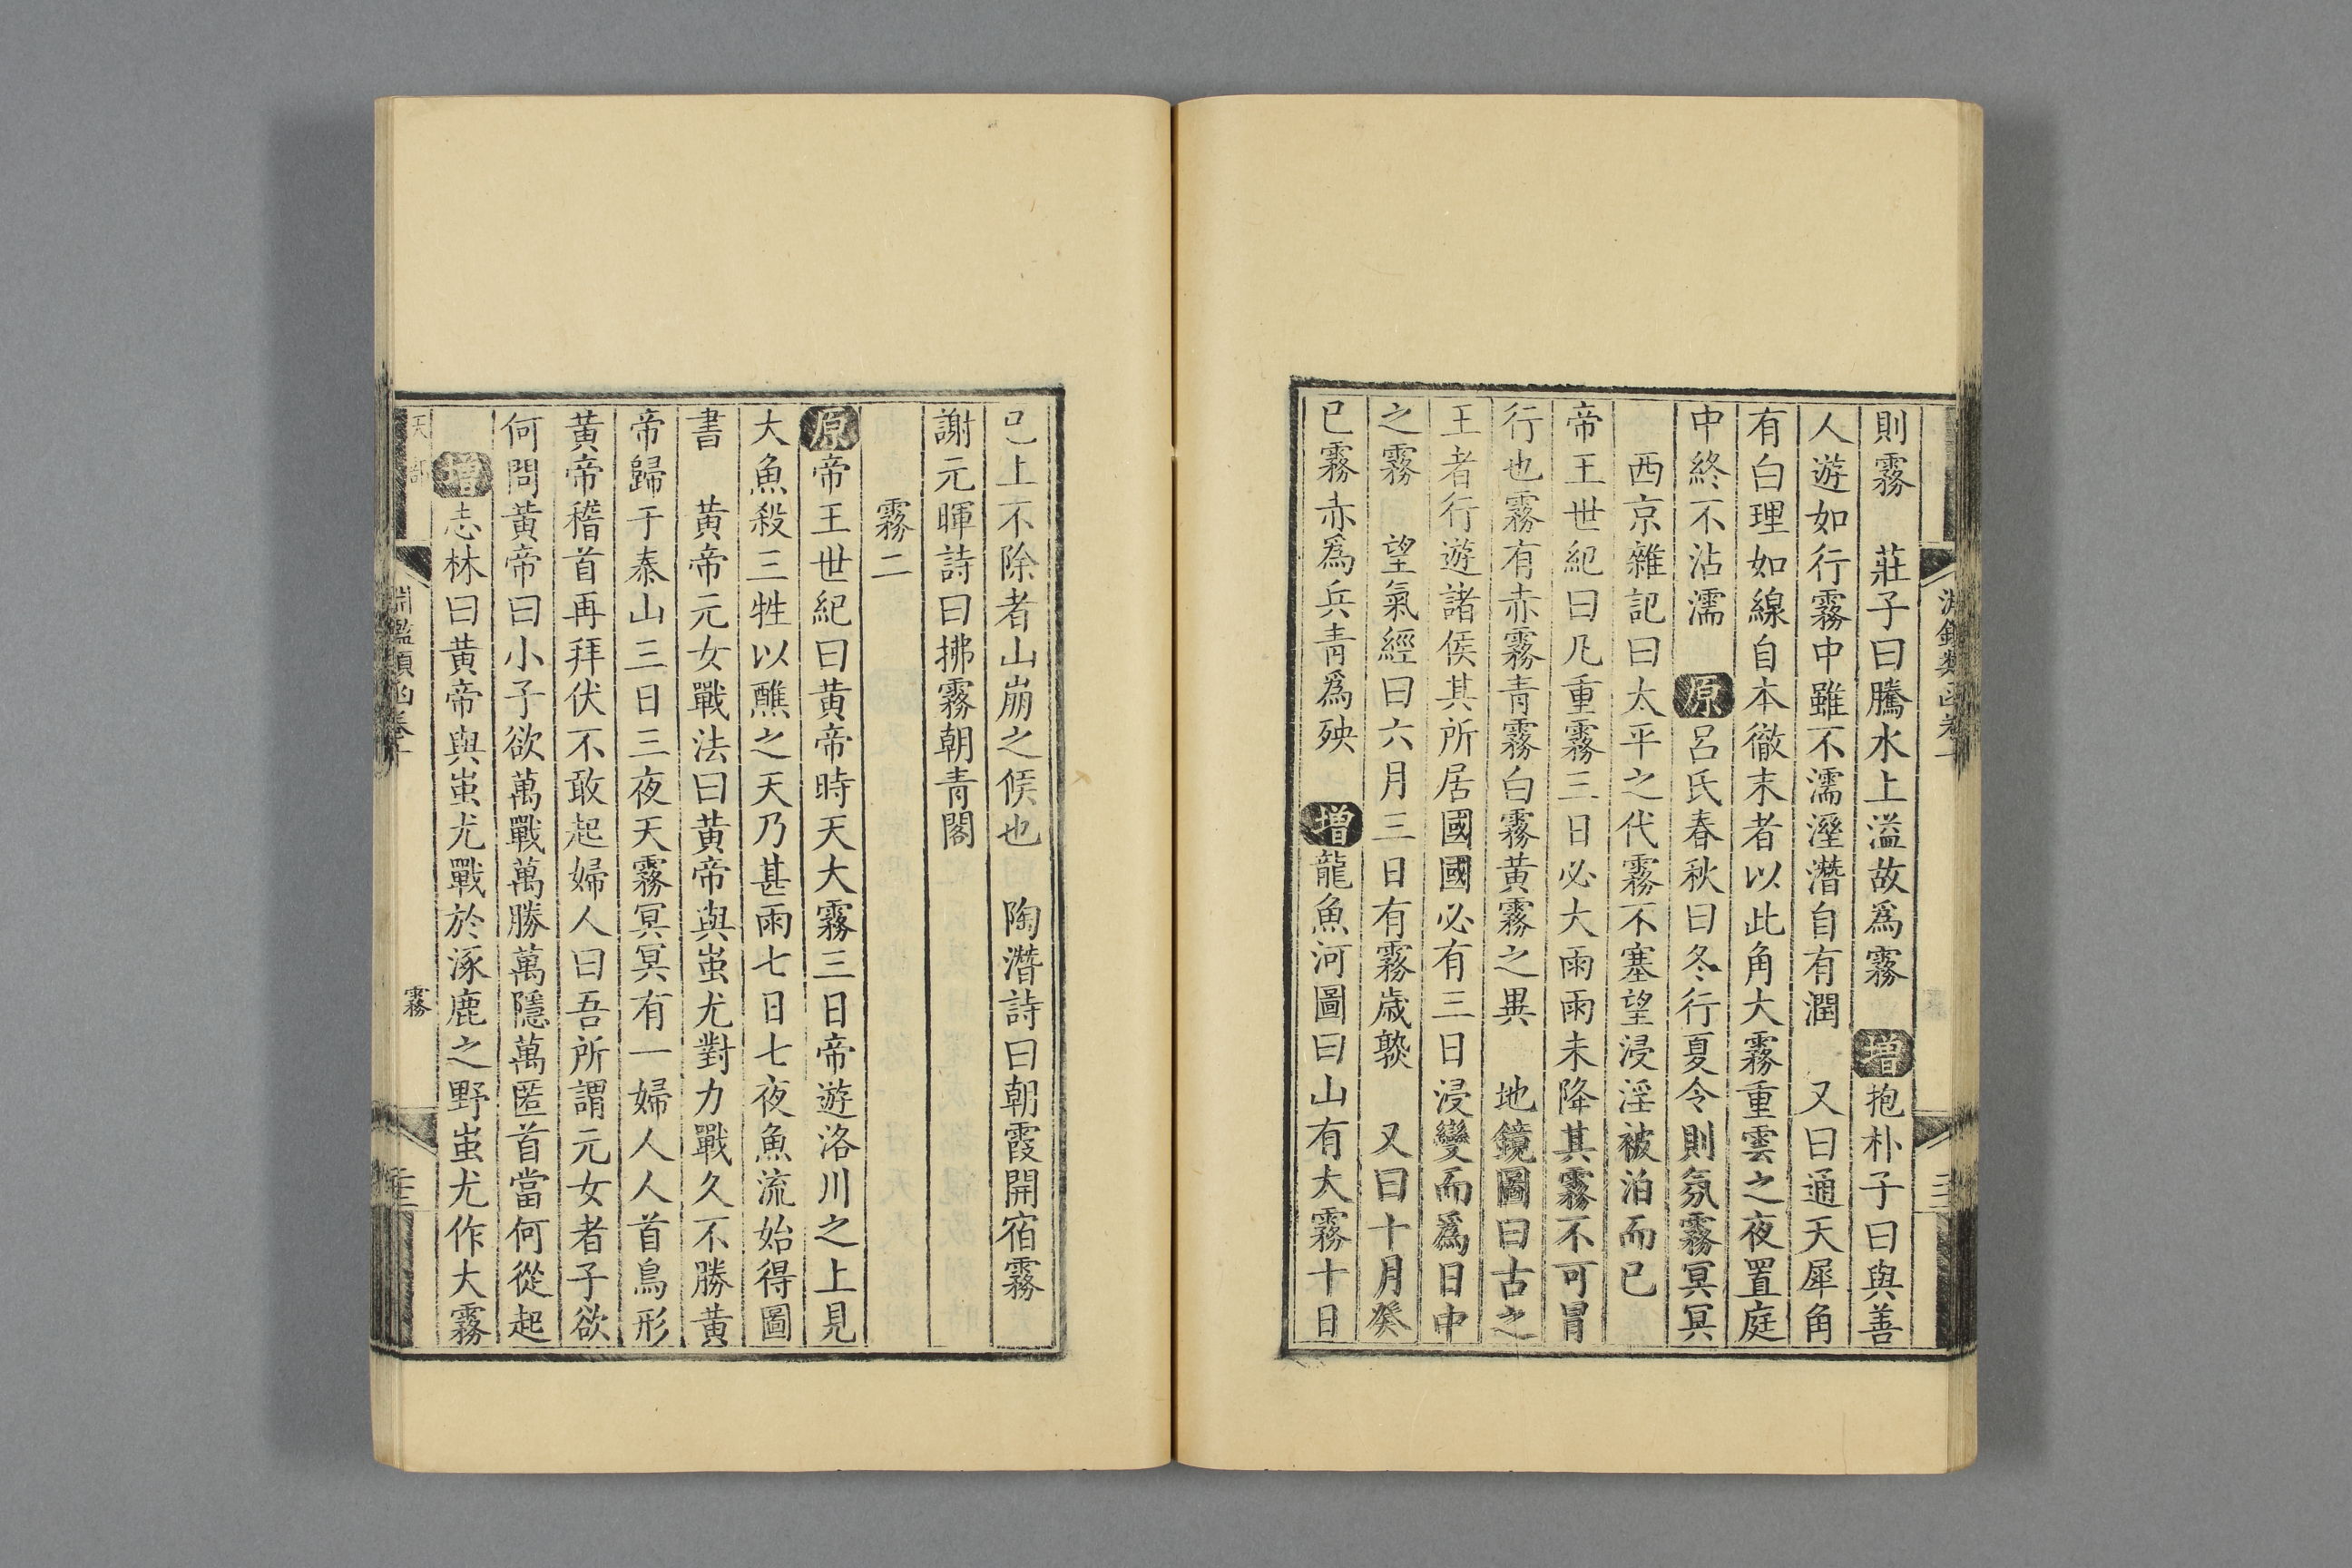 則霧 莊子曰騰水上溢故爲霧 增抱朴子曰與善
人遊如行霧中雖不濡溼潛自有潤 又曰通天犀角
有白理如線自本徹末者以此角大霧重雲之夜置庭
中終不沾濡 原呂氏春秋曰冬行夏令則氛霧冥冥
西京雜記曰太平之代霧不塞望浸淫被泊而已
帝王世紀曰凡重霧三日必大雨雨未降其霧不可冒
行也霧有赤霧青霧白霧黃霧之異 地鏡圖曰古之
王者行遊諸侯其所居國國必有三日浸變而爲日中
之霧 望氣經曰六月三日有霧歲㷅 又曰十月癸
巳霧赤爲兵青爲殃 增龍魚河圖曰山有大霧十日
已上不除者山崩之候也 陶潛詩曰朝霞開宿霧
謝元暉詩曰拂霧朝青閣
霧二
原帝王世紀曰黃帝時天大霧三日帝遊洛川之上見
大魚殺三牲以醮之天乃甚雨七日七夜魚流始得圖
書 黃帝元女戰法曰黃帝與蚩尤對力戰久不勝黃
帝歸于泰山三日三夜天霧冥冥有一婦人人首鳥形
黃帝稽首再拜伏不敢起婦人曰吾所謂元女者子欲
何問黃帝曰小子欲萬戰萬勝萬隱萬匿首當何從起
增志林曰黃帝與蚩尤戰於涿鹿之野蚩尤作大霧
天部
淵鑑類函卷十
霧